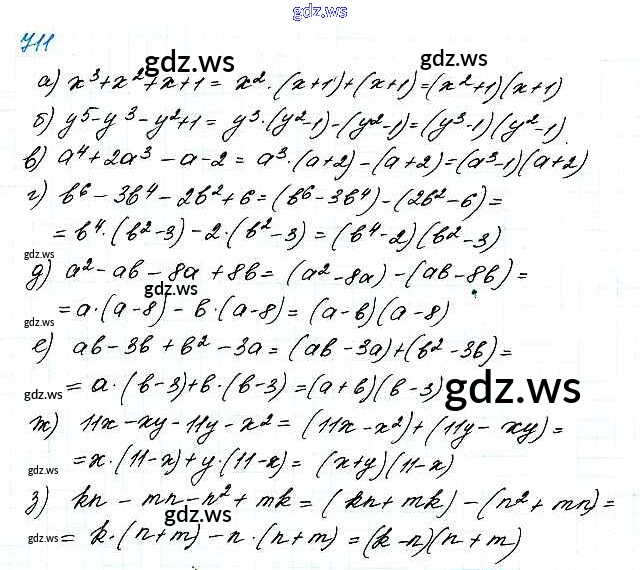 gdz.ws
711
gdz.ws
gdz.ws
а) x³+x²+x+1= x²·(x+1)+(x+1)=(x²+1)(x+1)
б) y⁵-y³-y²+1= y³·(y²-1)-(y²-1)=(y³-1)(y²-1)
в) a⁴+2a³-a-2= a³·(a+2)-(a+2)=(a³-1)(a+2)
г) b⁶-3b⁴-2b²+6=(b⁶-3b⁴)-(2b²-6)=
= b⁴·(b²-3)-2·(b²-3)=(b⁴-2)(b²-3)
gdz.ws
д) a²-ab-8a+8b=(a²-8a)-(ab-8b)=
gdz.ws
= a·(a-8)-b·(a-8)=(a-b)(a-8)
gdz.ws
е) ab-3b+b²-3a=(ab-3a)+(b²-3b)=
= a·(b-3)+b·(b-3)=(a+b)(b-3)
gdz.ws
gdz.ws
ж) 11x-xy-11y-x²=(11x-x²)+(11y-xy)=
= x·(11-x)+y·(11-x)=(x+y)(11-x)
gdz.ws
з) kn-mn-n²+mk=(kn+mk)-(n²+mn)=
gdz.ws
gdz.ws
= k·(n+m)-n·(n+m)=(k-n)(n+m)